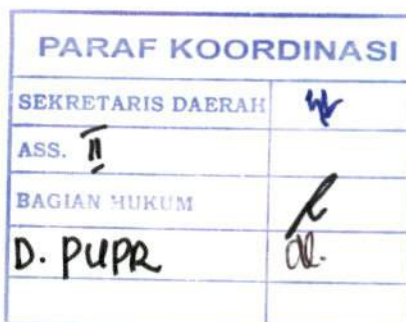 PARAF KOORDINASI
SEKRETARIS DAERAH
ASS. II
BAGIAN HUKUM
D. PUPR